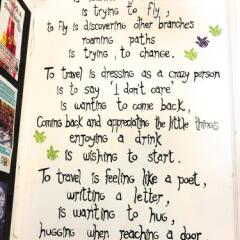 is trying to fly,
to fly is discovering other branches
roaming paths
is trying, to change.
To travel is dressing as a crazy person
is to say "I don't care"
is wanting to come back,
Coming back and appreciating the little things
enjoying a drink
is wishing to start.
To travel is feeling like a poet,
writting a letter,
is wanting to hug,
hugging when reaching a door